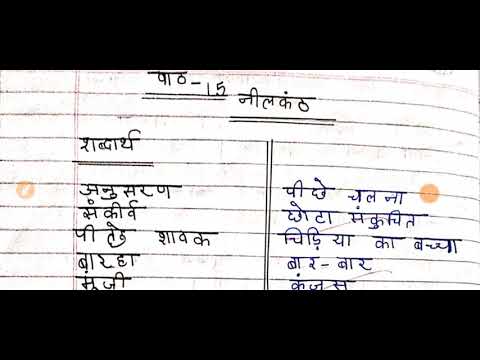 पाठ - 15
नीलकंठ
शब्दार्थ
अनुसरण पीछे चलना
संकीर्व छोटा संकुचित
शावक चिड़िया का बच्चा
बारहा बार-बार
मूंजी कंजूस